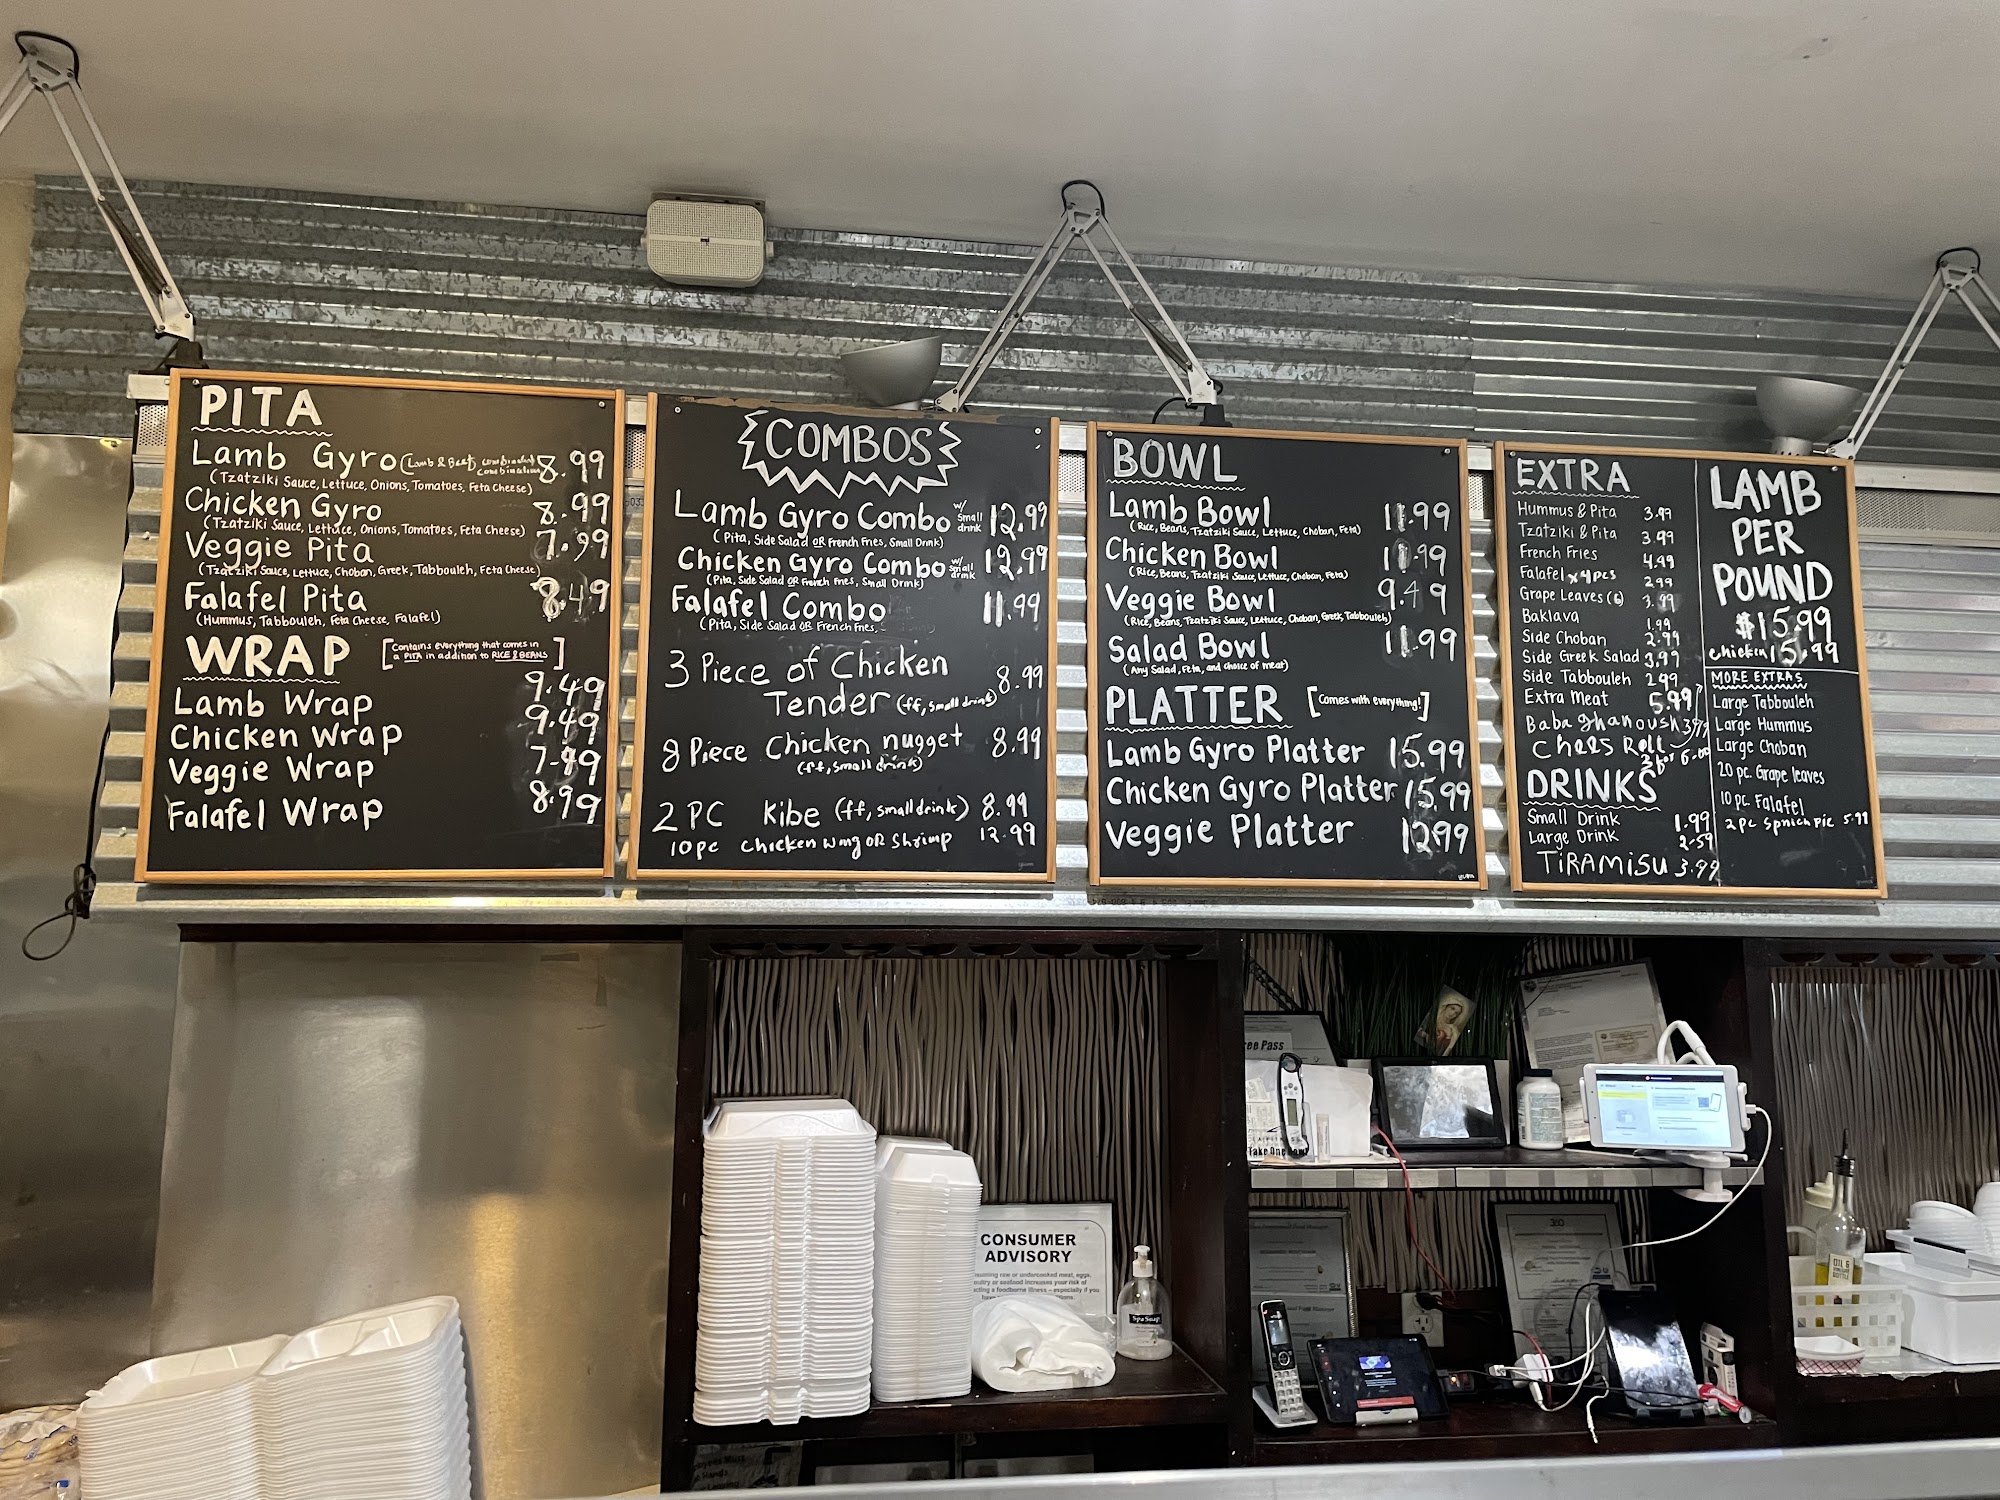 PITA
Lamb Gyro (Lamb & Beef) combination 8.99
(Tzatziki Sauce, Lettuce, Onions, Tomatoes, Feta Cheese)
Chicken Gyro 8.99
(Tzatziki Sauce, Lettuce, Onions, Tomatoes, Feta Cheese)
Veggie Pita 7.99
(Tzatziki Sauce, Lettuce, Choban, Greek, Tabbouleh, Feta Cheese)
Falafel Pita 8.49
(Hummus, Tabbouleh, Feta Cheese, Falafel)
WRAP [Contains everything that comes in
a PITA in addition to RICE & BEANS]
Lamb Wrap 9.49
Chicken Wrap 9.49
Veggie Wrap 7.99
Falafel Wrap 8.99
COMBOS
Lamb Gyro Combo w/ small drink 12.99
(Pita, Side Salad OR French Fries, Small Drink)
Chicken Gyro Combo w/ small drink 12.99
(Pita, Side Salad OR French Fries, Small Drink)
Falafel Combo 11.99
(Pita, Side Salad OR French Fries,
3 Piece of Chicken
Tender (ff, small drink) 8.99
8 Piece Chicken nugget 8.99
(ff, small drink)
2 PC Kibe (ff, small drink) 8.99
10pc chicken wing OR Shrimp 12.99
BOWL
Lamb Bowl 11.99
(Rice, Beans, Tzatziki Sauce, Lettuce, Choban, Feta)
Chicken Bowl 11.99
(Rice, Beans, Tzatziki Sauce, Lettuce, Choban, Feta)
Veggie Bowl 9.49
(Rice, Beans, Tzatziki Sauce, Lettuce, Choban, Greek, Tabbouleh)
Salad Bowl 11.99
(Any Salad, Feta, and choice of meat)
PLATTER [Comes with everything!]
Lamb Gyro Platter 15.99
Chicken Gyro Platter 15.99
Veggie Platter 12.99
EXTRA
Hummus & Pita 3.99
Tzatziki & Pita 3.99
French Fries 4.99
Falafel x 4 pcs 2.99
Grape Leaves (6) 3.99
Baklava 1.99
Side Choban 2.99
Side Greek Salad 3.99
Side Tabbouleh 2.99
Extra Meat 5.99
Baba ghanoush 3.99
Chees Roll 3 for 5.00
DRINKS
Small Drink 1.99
Large Drink 2.59
TiRAMiSU 3.99
LAMB
PER
POUND
$15.99
chicken 15.99
MORE EXTRAS
Large Tabbouleh
Large Hummus
Large Choban
20 pc. Grape leaves
10 pc. Falafel
2 pc Spnich Pie 5.99
ee Pass
Take One
CONSUMER
ADVISORY
suming raw or undercooked meat, eggs,
ultry or seafood increases your risk of
acting a foodborne illness – especially if you
Spa Soap
OIL &
VINEGAR
BOTTLE
360